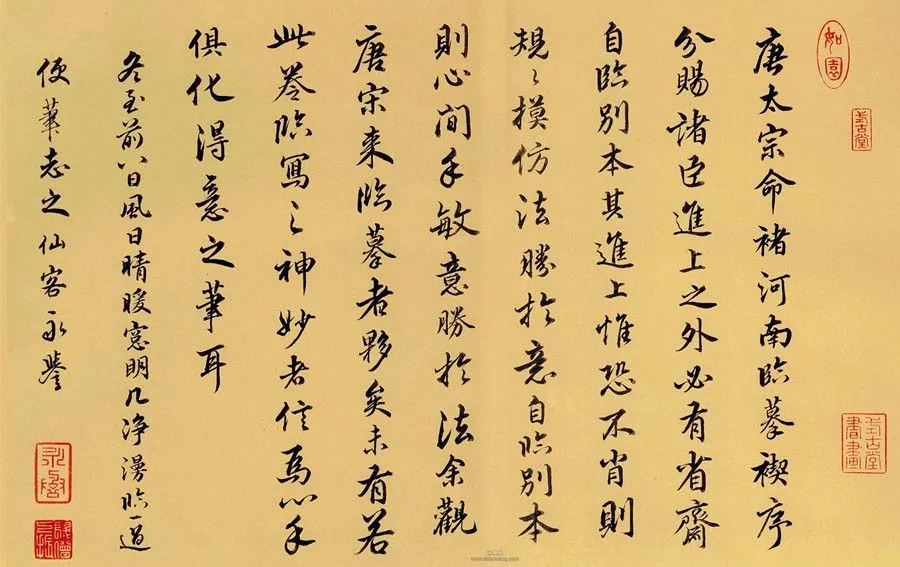 如園
式古堂
式古堂書畫
唐太宗命褚河南臨摹禊序
分賜諸臣進上之外必有省齋
自臨別本其進上惟恐不肖則
規〻摸仿法勝於意自臨別本
則心閒手敏意勝於法余觀
唐宋來臨摹者夥矣未有若
此卷臨寫之神妙者信爲心手
俱化得意之筆耳
冬至前八日風日晴暖窓明几净漫臨一過
便筆志之仙客永譽